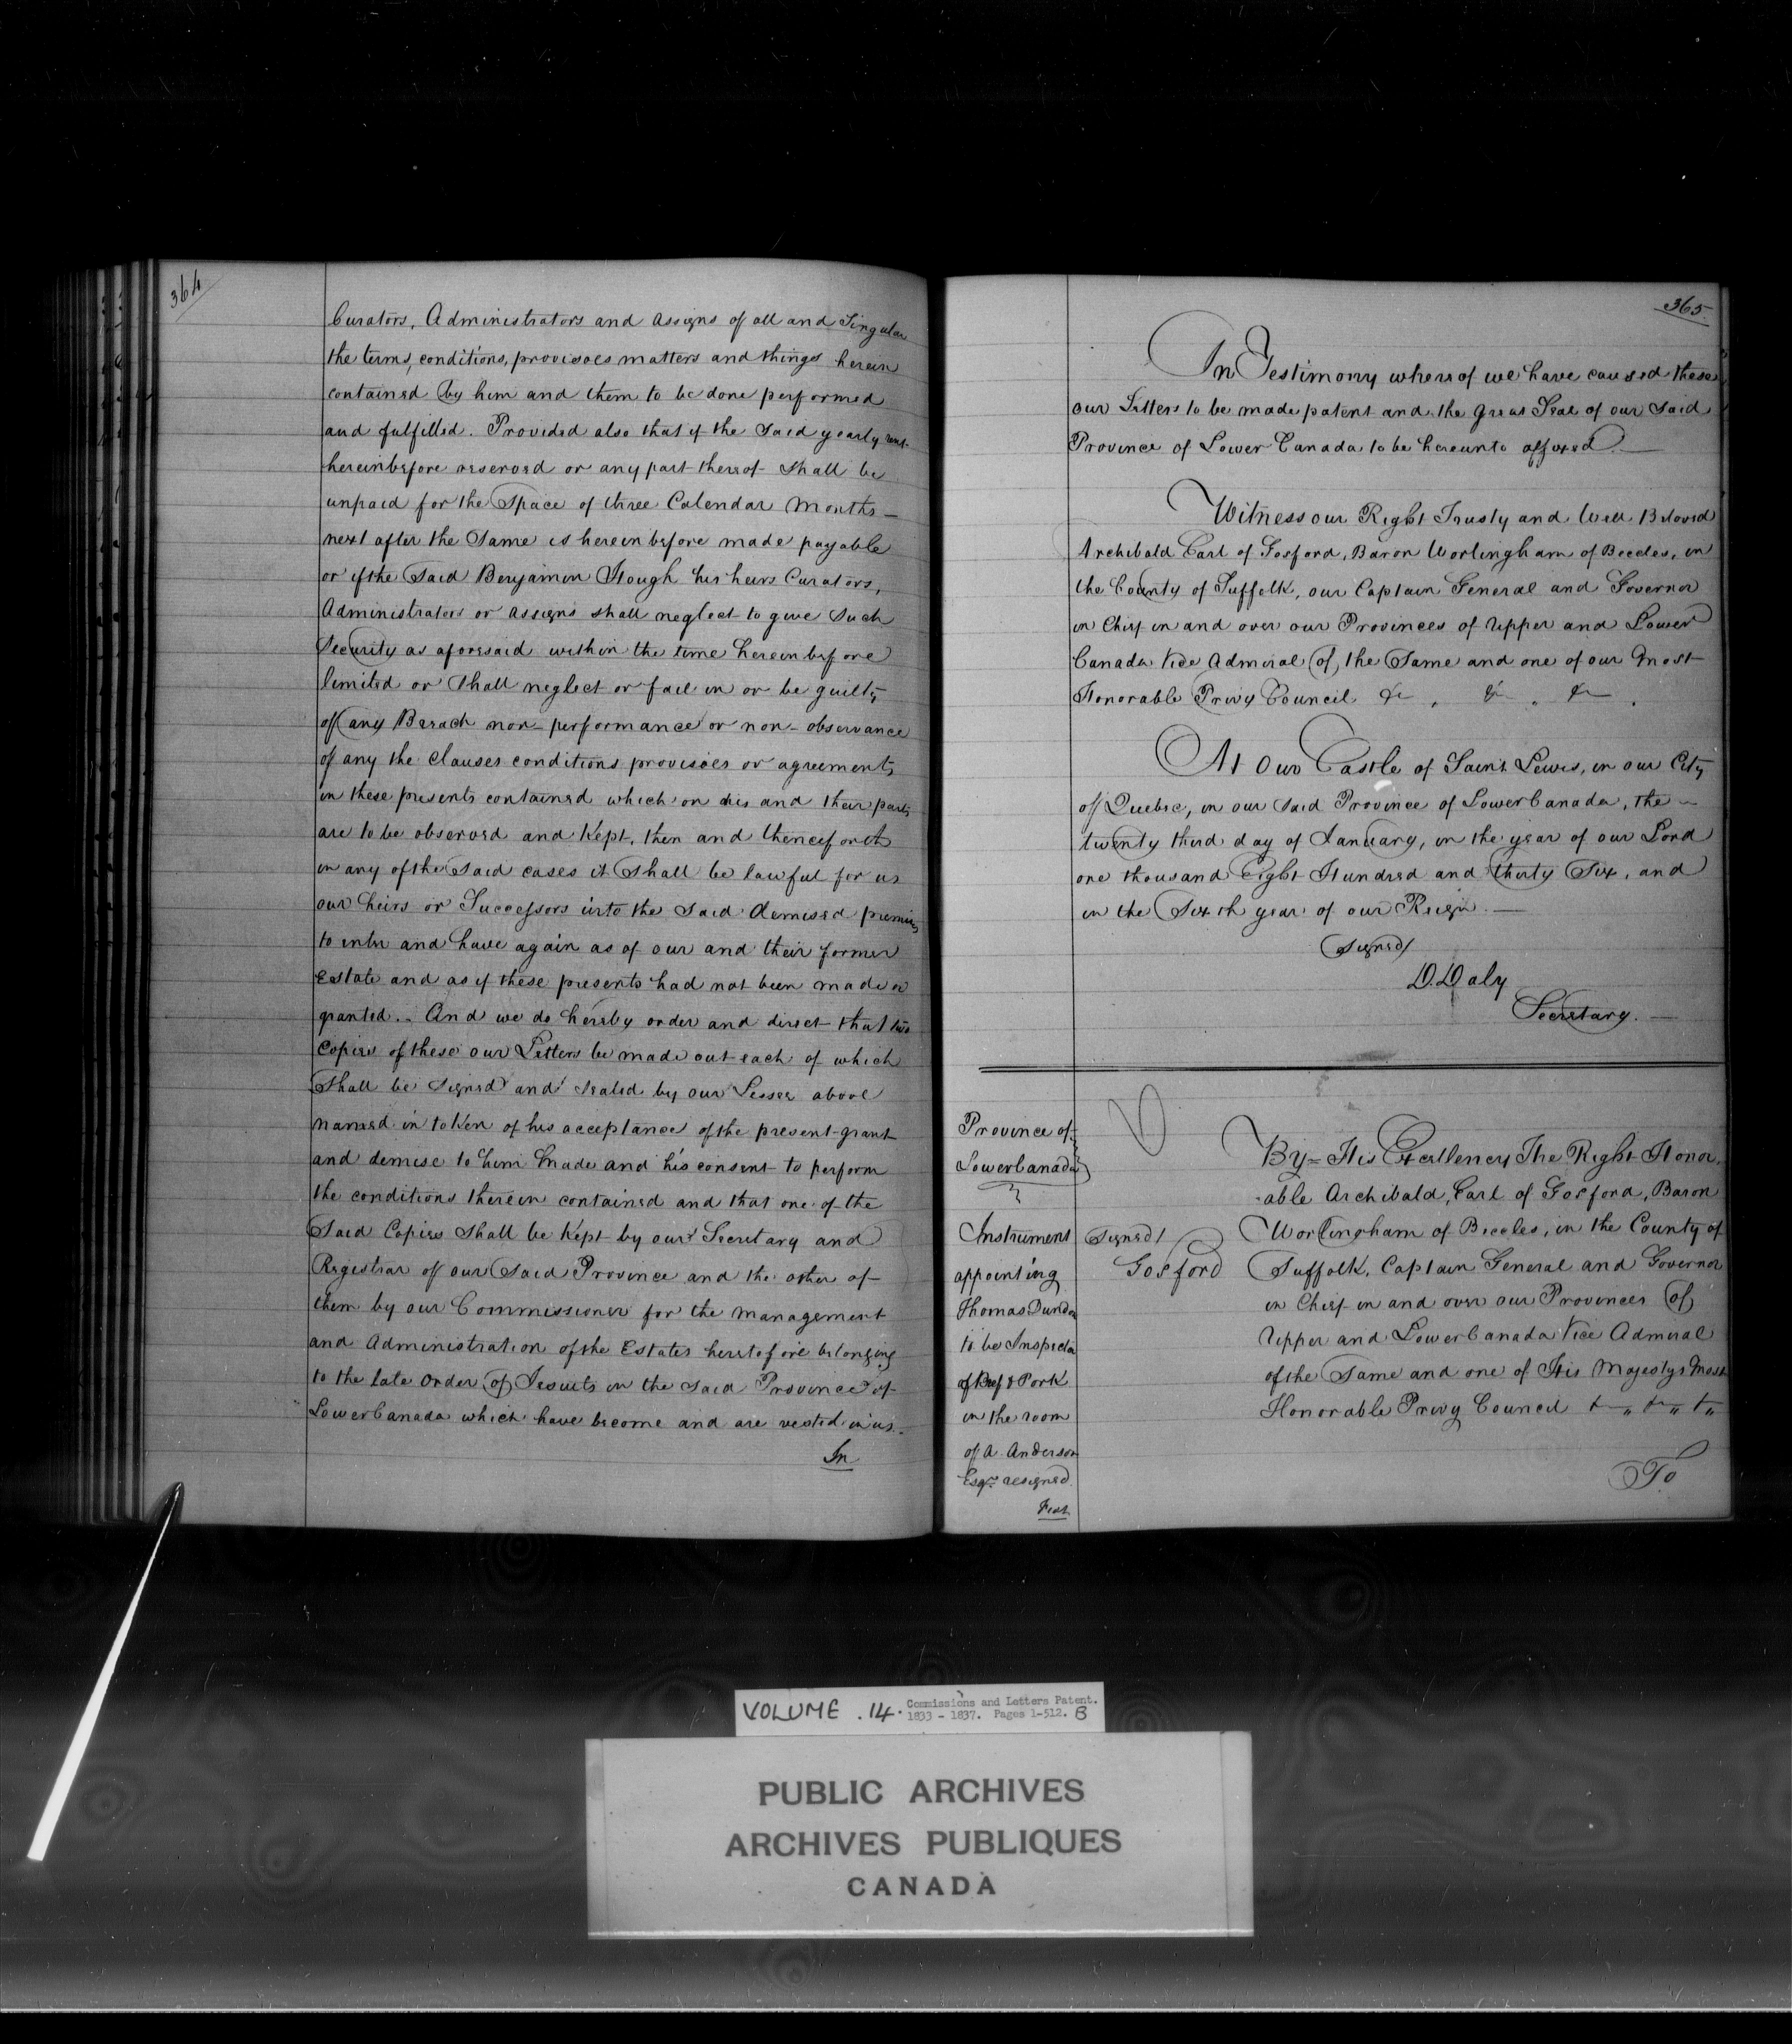 364
Curators, Administrators and Assigns of all and Singular
the terms, conditions, provisoes matters and things herein
contained by him and them to be done performed
and fulfilled. Provided also that if the said yearly rent
hereinbefore reserved or any part thereof shall be
unpaid for the Space of three Calendar Months —
next after the Same is hereinbefore made payable
or if the Said Benjamin Hough his heirs Curators,
Administrators or assigns shall neglect to give Such
Security as aforesaid within the time hereinbefore
limited or shall neglect or fail in or be guilty
of any Breach non-performance or non-observance
of any the Clauses conditions provisoes or agreements
in these presents contained which on his and their parts
are to be observed and Kept, then and thenceforth
in any of the Said cases it Shall be lawful for us
our heirs or Successors into the Said demised premises
to enter and have again as of our and their former
Estate and as if these presents had not been made or
granted. — And we do hereby order and direct that two
Copies of these our Letters be made out each of which
Shall be Signed and Sealed by our Lessee above
named in token of his acceptance of the present grant
and demise to him made and his consent to perform
the conditions therein contained and that one of the
Said Copies Shall be Kept by our Secretary and
Registrar of our Said Province and the other of
them by our Commissioner for the management
and Administration of the Estates heretofore belonging
to the late Order of Jesuits in the Said Province of
Lower Canada which have become and are vested in us.
In
365
In Testimony whereof we have caused these
our Letters to be made patent and the great Seal of our Said
Province of Lower Canada to be hereunto affixed. —
Witness our Right Trusty and Well Beloved
Archibald Earl of Gosford, Baron Worlingham of Beccles, in
the County of Suffolk, our Captain General and Governor
in Chief in and over our Provinces of Upper and Lower
Canada Vice Admiral of the Same and one of our Most
Honorable Privy Council &c , &c , &c .
At Our Castle of Saint Lewis, in our City
of Quebec, in our Said Province of Lower Canada, the —
twenty third day of January, in the year of our Lord
one thousand Eight Hundred and thirty Six, and
in the Sixth year of our Reign. —
Signed/
D. Daly
Secretary. —
Province of
Lower Canada }
Instrument
appointing
Thomas Dundon
to be Inspector
of Beef & Pork
in the room
of A. Anderson
Esqr. resigned.
Signed/
Gosford
By His Excellency The Right Honor-
able Archibald, Earl of Gosford, Baron
Worlingham of Beccles, in the County of
Suffolk, Captain General and Governor
in Chief in and over our Provinces of
Upper and Lower Canada Vice Admiral
of the Same and one of His Majestys Most
Honorable Privy Council &c „ &c „ &c „
To
VOLUME . 14 . Commissions and Letters Patent.
1833 - 1837. Pages 1-512. B
PUBLIC ARCHIVES
ARCHIVES PUBLIQUES
CANADA